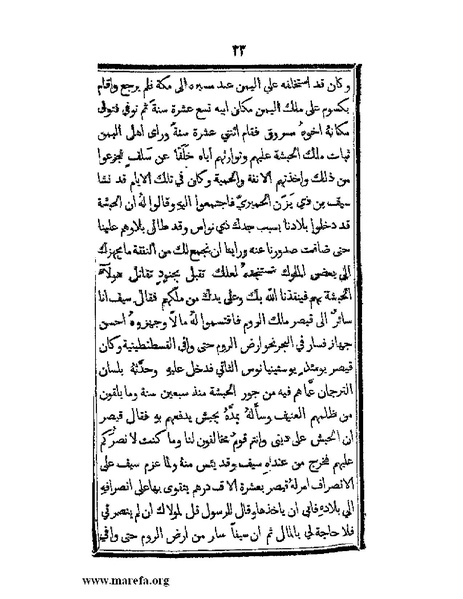 ٢٣
وكان قد استخلفه على اليمن عند مسيره الى مكة فلم يرجع واقام
يكسوم على ملك اليمن مكان ابيه تسع عشرة سنة ثم توفي فتولى
مكانهُ اخوهُ مسروق فقام اثنتي عشرة سنةً وراى اهل اليمن
ثبات ملك الحبشة عليهم وتوارثهم اياه خلفًا عن سلفٍ فجزعوا
من ذلك واخذتهم الانفة والحمية وكان في تلك الايام قد نشا
سيف بن ذي يزن الحميريّ فاجتمعوا اليهِ وقالوا لهُ ان الحبشة
قد دخلوا بلادنا بسبب جدك ذي نواس وقد طال بلاوهم علينا
حتى ضاقت صدورنا عنه وراينا ان نجمع لك من النفقة ما يجهزك
الى بعض الملوك تستنجدهُ لعلك تقبل بجنودٍ تقاتل هولآء
الحبشة بهم فينقذنا الله بك وعلى يدك من ملكهم فقال سيف انا
سائرٌ الى قيصر ملك الروم فاقتسموا لهُ مالًا وجهزوهُ احسن
جهاز فسار في البحر نحو ارض الروم حتى وافى القسطنطينية وكان
قيصر يومئذٍ يوستينيانوس الثاني فدخل عليهِ وحدَّثهُ بلسان
الترجمان عمَّا هم فيه من جور الحبشة منذ سبعين سنة وما يلقون
من ظلمهم العنيف وسألهُ ان يمدَّهُ بجيش يدفعهم بهِ فقال قيصر
ان الحبش على ديني وانتم قومٌ مخالفون لنا وما كنت لانصركم
عليهم فخرج من عندهِ سيف وقد يئس منهُ ولما عزم سيف على
الانصراف امر لهُ قيصر بعشرة الاف درهم يتقوى بها على انصرافهِ
الى بلادهِ فابى ان ياخذها وقال للرسول قل لمولاك ان لم ينصرني
فلا حاجة لي بالمال ثم ان سيفاً سار من ارض الروم حتى وافى
www.marefa.org